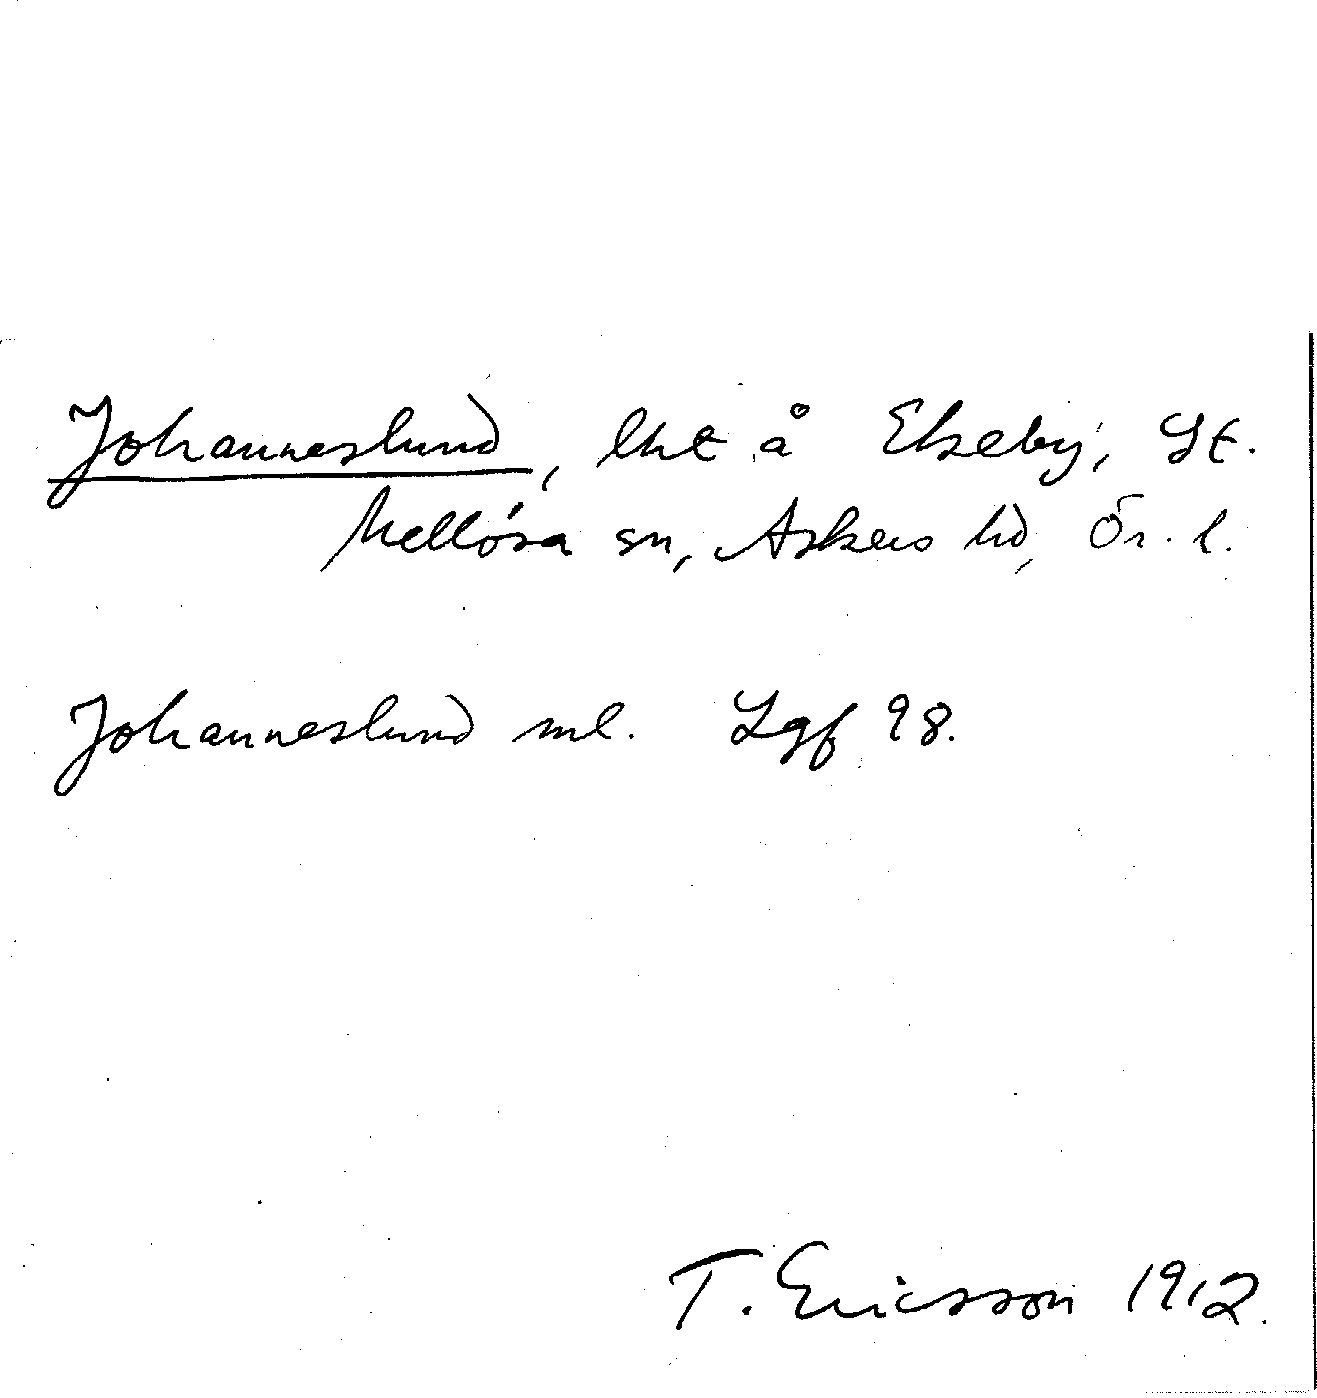 Johanneslund, lht å Ekeby, St.
Mellösa sn, Askers hd, Ör. l.
Johanneslund ml. Lgf 98.
T. Ericsson 1912.